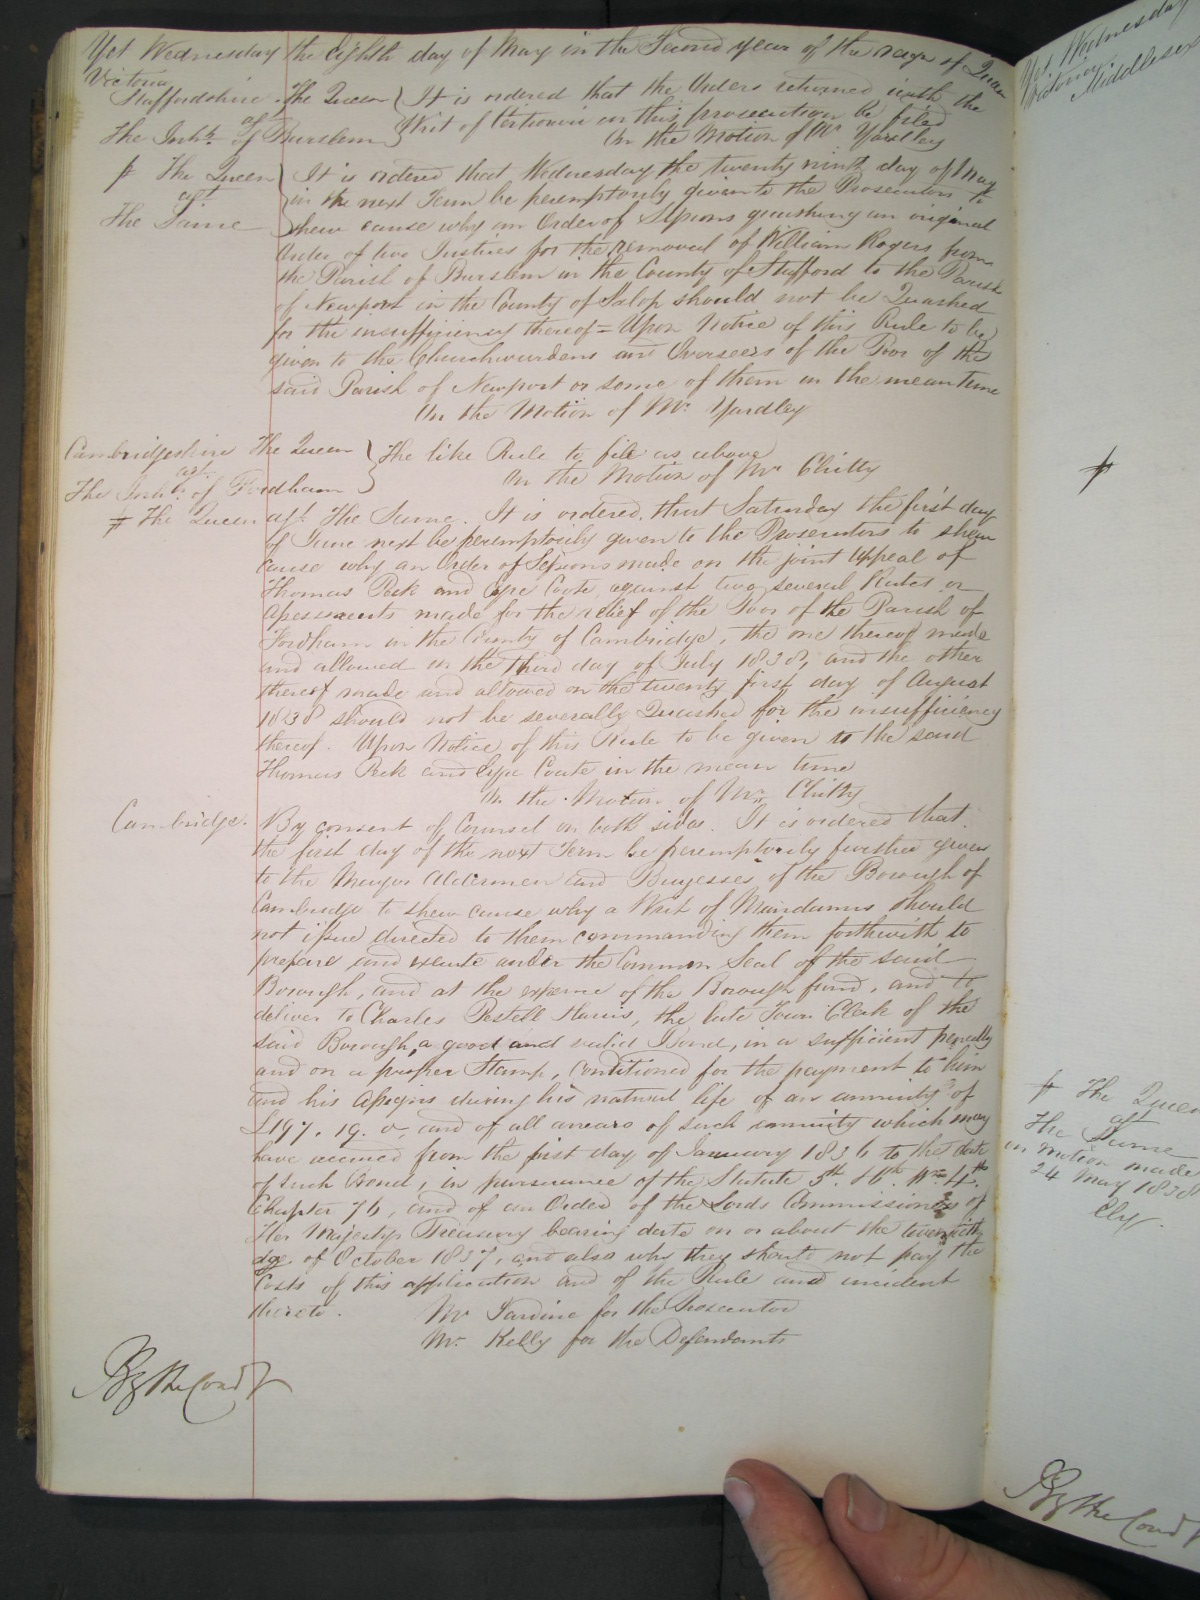 Yet Wednesday the Eighth day of May in the Second year of the reign of Queen
Victoria
Staffordshire. The Queen } It is ordered that the Orders returned with the
agt Writ of Certiorari in this prosecution be filed
The Inhts of Burslem } On the Motion of Mr Yardley
The Queen } It is ordered that Wednesday the twenty ninth day of May
agt in the next Term be peremptorily given to the Prosecutors to
The Same } shew cause why an Order of Sessions quashing an original
Order of two Justices for the removal of William Rogers from
the Parish of Burslem in the County of Stafford to the Parish
of Newport in the County of Salop should not be Quashed
for the insufficiency thereof = Upon Notice of this Rule to be
given to the Churchwardens and Overseers of the Poor of the
said Parish of Newport or some of them in the mean time
On the Motion of Mr Yardley
Cambridgeshire The Queen } The like Rule to file as above
agt On the Motion of Mr Chitty
The Inhts of Fordham }
The Queen agt The Same. It is ordered that Saturday the first day
of June next be peremptorily given to the Prosecutors to shew
cause why an Order of Sessions made on the joint Appeal of
Thomas Peck and Coote against two several Rates or
Assessments made for the relief of the Poor of the Parish of
Fordham in the County of Cambridge, the one thereof made
and allowed on the third day of July 1838, and the other
thereof made and allowed on the twenty first day of August
1838 should not be severally Quashed for the insufficiency
thereof. Upon Notice of this Rule to be given to the said
Thomas Peck and Coote in the mean time
On the Motion of Mr Chitty
Cambridge. By consent of Counsel on both sides. It is ordered that
the first day of the next Term be peremptorily further given
to the Mayor Aldermen and Burgesses of the Borough of
Cambridge to shew cause why a Writ of Mandamus should
not issue directed to them commanding them forthwith to
prepare and execute under the Common Seal of the said
Borough, and at the expense of the Borough fund, and to
deliver to Charles Pestell Harris, the late Town Clerk of the
said Borough, a good and valid Bond, in a sufficient penalty
and on a proper Stamp, conditioned for the payment to him
and his Assigns during his natural life of an annuity of
£197. 19. 0, and of all arrears of such annuity which may
have accrued from the first day of January 1836 to the date
of such Bond, in pursuance of the Statute 5th & 6th Wm 4th
Chapter 76, and of an Order of the Lords Commissioners of
Her Majestys Treasury bearing date on or about the twentieth
day of October 1837, and also why they should not pay the
Costs of this application and of the Rule and incident
thereto. Mr Jardine for the Prosecutor
Mr Kelly for the Defendants
By the Court
Yet Wednesday
Victoria
Middlesex
The Queen
agt
The Same
on motion made
24 May 1838
By the Court